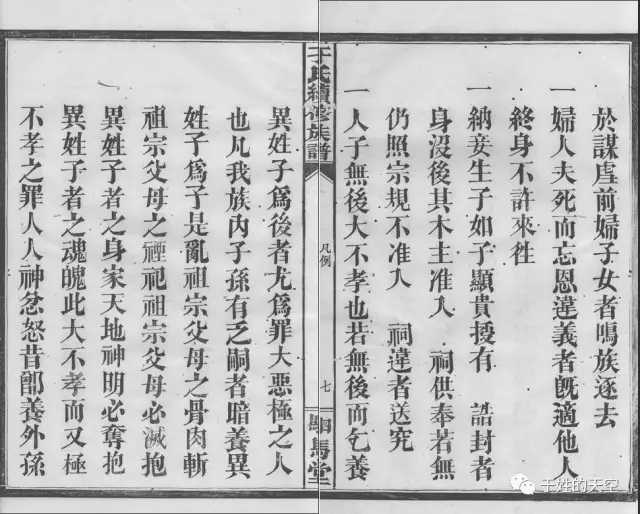 於謀虐前婦子女者鳴族逐去
一婦人夫死而忘恩違義者旣適他人
終身不許來徃
一納妾生子如子顯貴授有 誥封者
身沒後其木主准入 祠供奉若無
仍照宗規不准入 祠違者送究
一人子無後大不孝也若無後而乞養
于氏續修族譜
凡例
七
駟馬堂
異姓子爲後者尤爲罪大惡極之人
也凡我族內子孫有乏嗣者暗養異
姓子爲子是亂祖宗父母之骨肉斬
祖宗父母之禋祀祖宗父母必滅抱
異姓子者之身家天地神明必奪抱
異姓子者之魂魄此大不孝而又極
不孝之罪人人神忿怒昔鄫養外孫
于姓的天空